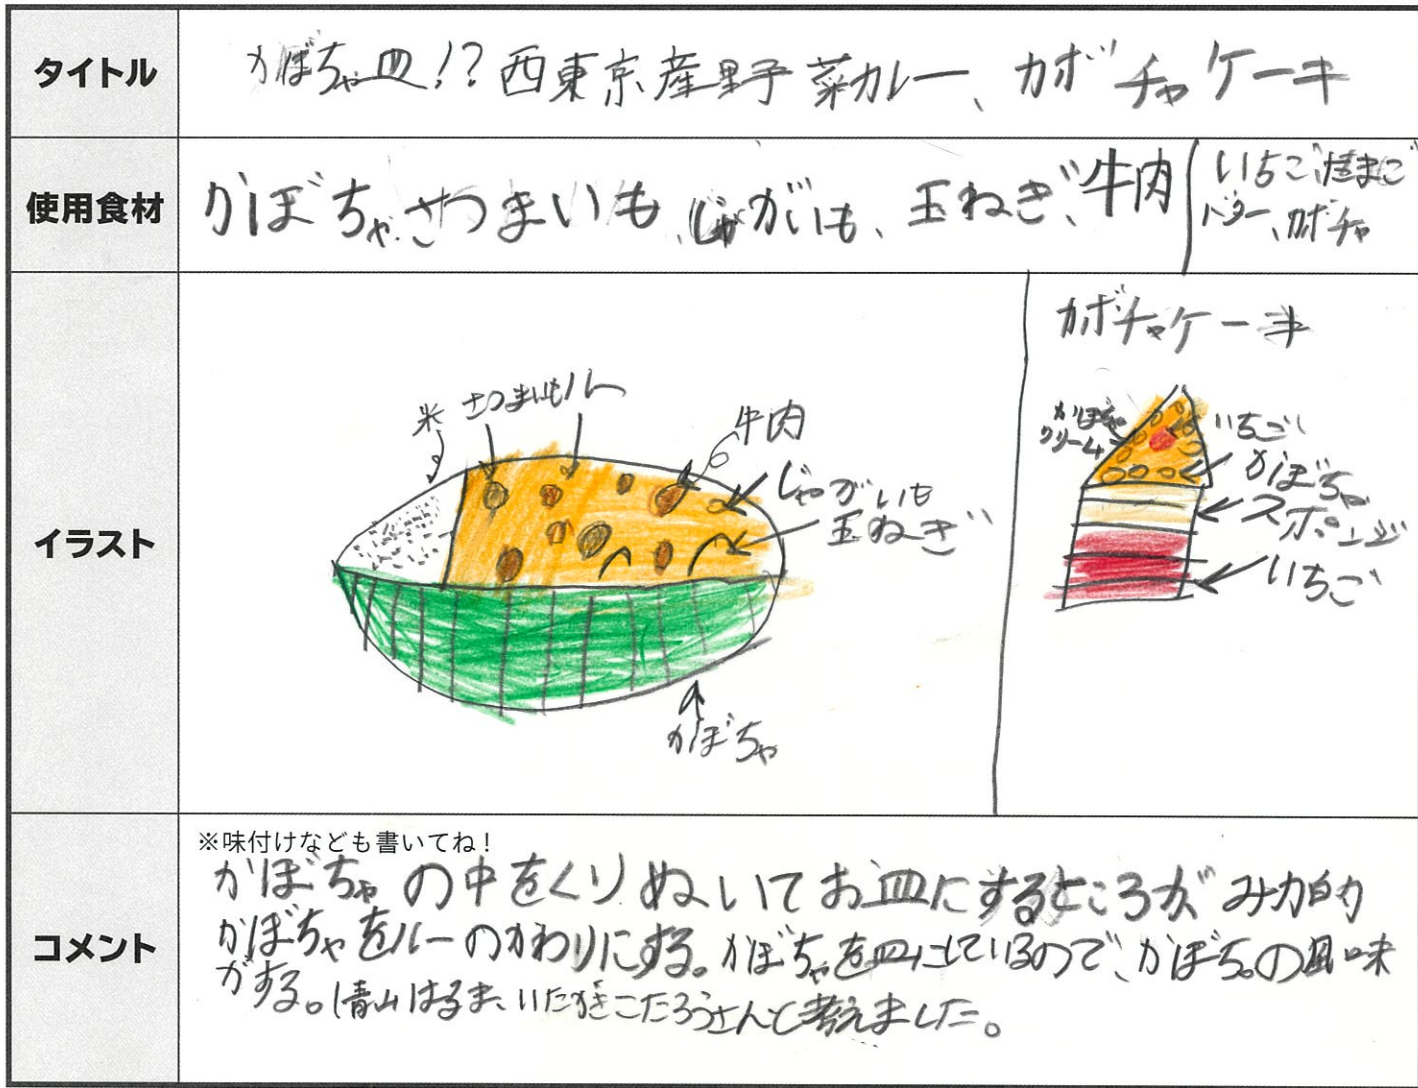 タイトル
かぼちゃ皿!?西東京産野菜カレー、カボチャケーキ
使用食材
かぼちゃ、さつまいも、じゃがいも、玉ねぎ、牛肉
いちご、たまご
バター、カボチャ
イラスト
米
さつまいも
ルー
牛肉
じゃがいも
玉ねぎ
かぼちゃ
カボチャケーキ
かぼちゃ
クリーム
いちご
かぼちゃ
スポンジ
いちご
コメント
※味付けなども書いてね!
かぼちゃの中をくりぬいてお皿にするところがみ力的
かぼちゃをルーのかわりにする。かぼちゃを皿にしているので、かぼちゃの風味
がする。青山はるま、いたがきこたろうさんと考えました。